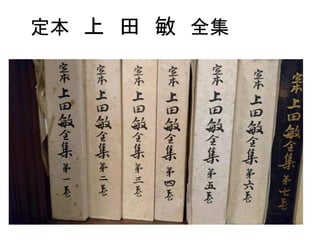 定本 上 田 敏 全集
定本 上田敏全集 第一巻
定本 上田敏全集 第二巻
定本 上田敏全集 第三巻
定本 上田敏全集 第四巻
定本 上田敏全集 第五巻
定本 上田敏全集 第六巻
定本 上田敏全集 第七巻